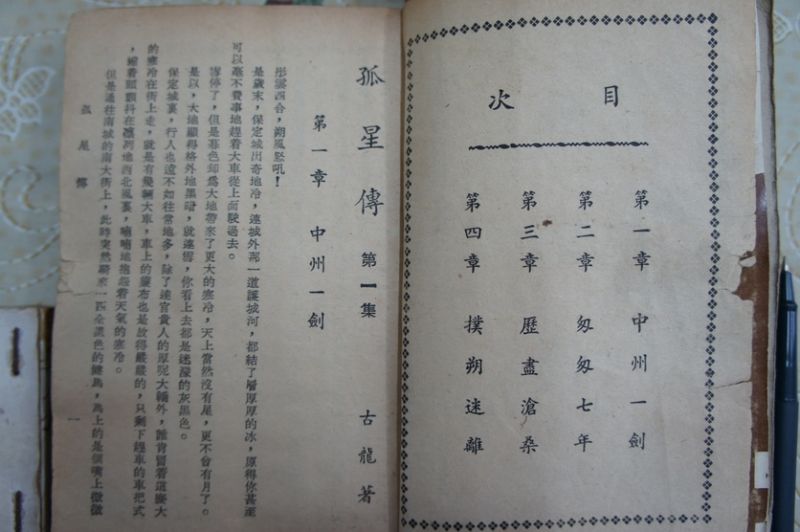 目次
第一章 中州一劍
第二章 匆匆七年
第三章 歷盡滄桑
第四章 撲朔迷離
孤星傳 第一集 古龍著
第一章 中州一劍
彤雲四合,朔風怒吼!
是歲末,保定城出奇地冷,連城外那一道護城河,都結了層厚厚的冰,厚得你甚至
可以毫不費事地趕着大車從上面駛過去。
雪停了,但是暮色却爲大地帶來了更大的寒冷,天上當然沒有星,更不會有月了。
是以,大地顯得格外地黑暗,就連雪,你看上去都是迷濛的灰黑色。
保定城裏,行人也遠不如往常地多,除了達官貴人的厚呢大轎外,誰肯冒着這麼大
的寒冷在街上走,就是有幾輛大車,車上的簾布也是放得嚴嚴的,只剩下趕車的車把式
,縮着頭顫抖在凜冽地西北風裏,喃喃地抱怨着天氣的寒冷。
但是通往南城的南大街上,此時突然馳來一匹全黑色的健馬,馬上的是個嘴上微微
孤星傳
一